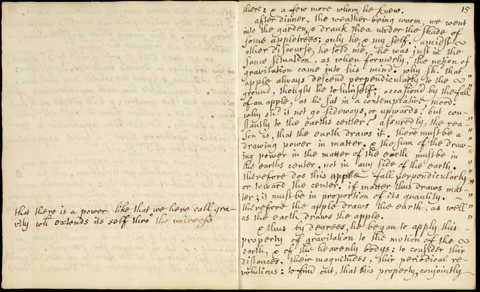 that there is a power like that we here call gra-
vity wh extends its self thro' the universe
15
there: & a few more whom he knew.
after dinner, the weather being warm, we went
into the garden, & drank thea under the shade of
some appletrees; only he, & my self. amidst
other discourse, he told me, he was just in the
same situation, as when formerly, the notion of
gravitation came into his mind. why shd. that
apple always descend perpendicularly to the
ground, thought he to himself; occasion'd by the fall
of an apple, as he sat in a contemplative mood.
why shd. it not go sideways, or upwards? but con-
stantly to the earths center? assuredly, the rea-
son is, that the earth draws it. there must be a
drawing power in matter. & the sum of the draw-
ing power in the matter of the earth must be in
the earths center, not in any side of the earth.
therefore dos this apple fall perpendicularly
or toward the center. if matter thus draws mat-
ter; it must be in proportion of its quantity.
therefore the apple draws the earth, as well
as the earth draws the apple.
& thus by degrees, he began to apply this
property of gravitation to the motion of the
earth, & of the heavenly bodys: to consider thir
distances, their magnitudes, thir periodical re-
volutions: to find out, that this property, conjointly